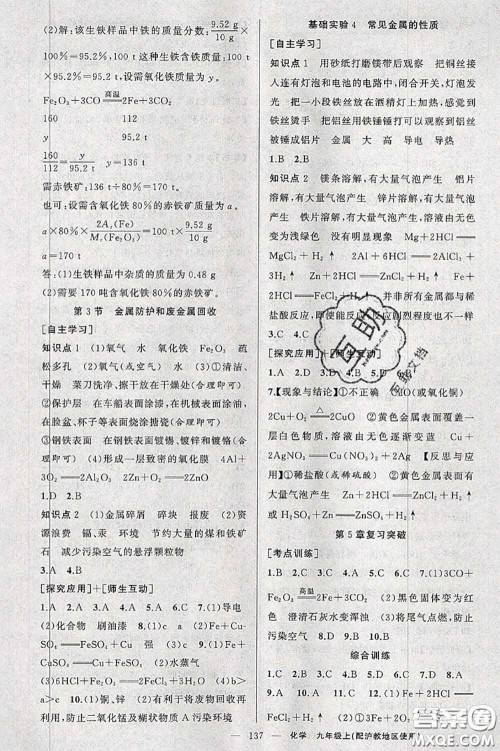 (2)解:该生铁样品中生铁的质量分数:9.52 g/10 g
×100%=95.2%,100 t生铁中铁的质量为100 t
×95.2%=95.2 t,设需氧化铁质量为 x
Fe₂O₃+3CO 高温 2Fe+3CO₂
160 112
x 95.2 t
160/112=x/95.2 t
x=136 t
需赤铁矿:136 t÷80%=170 t
也可:设需含氧化铁80%的赤铁矿质量为 a
a×80%×2Aᵣ(Fe)/Mᵣ(Fe₂O₃)=100 t×9.52 g/10 g
a=170 t
答:(1)生铁样品中杂质的质量为 0.48 g
(2)需要 170 吨含氧化铁 80%的赤铁矿。
第3节 金属防护和废金属回收
【自主学习】
知识点1 (1)氧气 水 氧化铁 Fe₂O₃ 疏
松多孔 (2)氧气(或空气) 水 (3)①清洁、
干燥 菜刀洗净、擦干放在干燥处(合理即可)
②保护层 在车船表面涂漆,在机械表面涂油,
在脸盆、杯子等表面烧涂搪瓷(合理即可)
③钢铁表面 在钢铁表面镀铬、镀锌和镀铬(合
理即可) (4)形成一层致密的氧化膜 4Al+
3O₂══2Al₂O₃ 2Zn+O₂══2ZnO
1.D 2.B
知识点2 (1)金属碎屑 碎块 报废 (2)资
源浪费 镉、汞 环境 节约大量的煤和铁矿
石 减少污染空气的悬浮颗粒物
3.D 4.B
【探究应用】+【师生互动】
1.A 2.A 3.B 4.B 5.C 6.A 7.(1)导电
(2)化合物 刷油漆 8.(1)O₂ (2)Fe+
CuSO₄══FeSO₄+Cu 9.(1)c (3)Fe+
CuSO₄══FeSO₄+Cu (2)水蒸气 (3)b
>a>c 10.(1)铜、锌 (2)有利于将废物回收,
防止二氧化锰及糊状物质 A 污染环境
基础实验4 常见金属的性质
【自主学习】
知识点1 用砂纸打磨镁带后可以观察 把铜丝接
入连有灯泡和电池的电路中,闭合开关,灯泡发
光 把铁丝的一端放在酒精灯上加热,感觉到
铁丝烫手 把铝丝用铁锤捶打后可以观察到铝丝
被锤成铝片 金属 大 高 导电 导热
1.B 2.B
知识点2 镁条溶解,有大量气泡产生 铝片
溶解,有大量气泡产生 锌片溶解,有大量气泡
产生 铁片溶解,有大量气泡产生,溶液由无色
变为浅绿色 无现象 Mg+2HCl══
MgCl₂+H₂↑ 2Al+6HCl══2AlCl₃+
3H₂↑ Zn+2HCl══ZnCl₂+H₂↑ Fe+
2HCl══FeCl₂+H₂↑ 并非所有金属都能和稀
盐酸反应,即使能反应,反应的剧烈程度也不一样
3.C 4.C
【探究应用】+【师生互动】
1.C 2.A 3.D 4.D 5.A 6.B
7.【现象与结论】①不正确 CuO(或氧化铜)
2Cu+O₂══2CuO ②黄色金属表面覆盖一
层白色物质,溶液由无色变成蓝色 Cu+
2AgNO₃══Cu(NO₃)₂+2Ag 【反思与应
用】①稀盐酸(或稀硫酸) ②黄色金属表面有
大量气泡产生 Zn+2HCl══ZnCl₂+H₂↑
或 Zn+H₂SO₄══ZnSO₄+H₂↑
第5章复习突破
【考点训练】
1.C 2.D 3.D 4.C 5.B 6.(1)3CO+
Fe₂O₃ 高温 2Fe+3CO₂ (2)黑色固体变为红
色 澄清石灰水变浑浊 (3)将尾气点燃,防止
污染空气 7.B 8.D 9.B 10.B
综合训练
1.C 2.A 3.D 4.B 5.A 6.C 7.C 8.D
137 化学 九年级上(配沪教地区使用)
互助
作业帮文档
答案圈
MXQE.COM